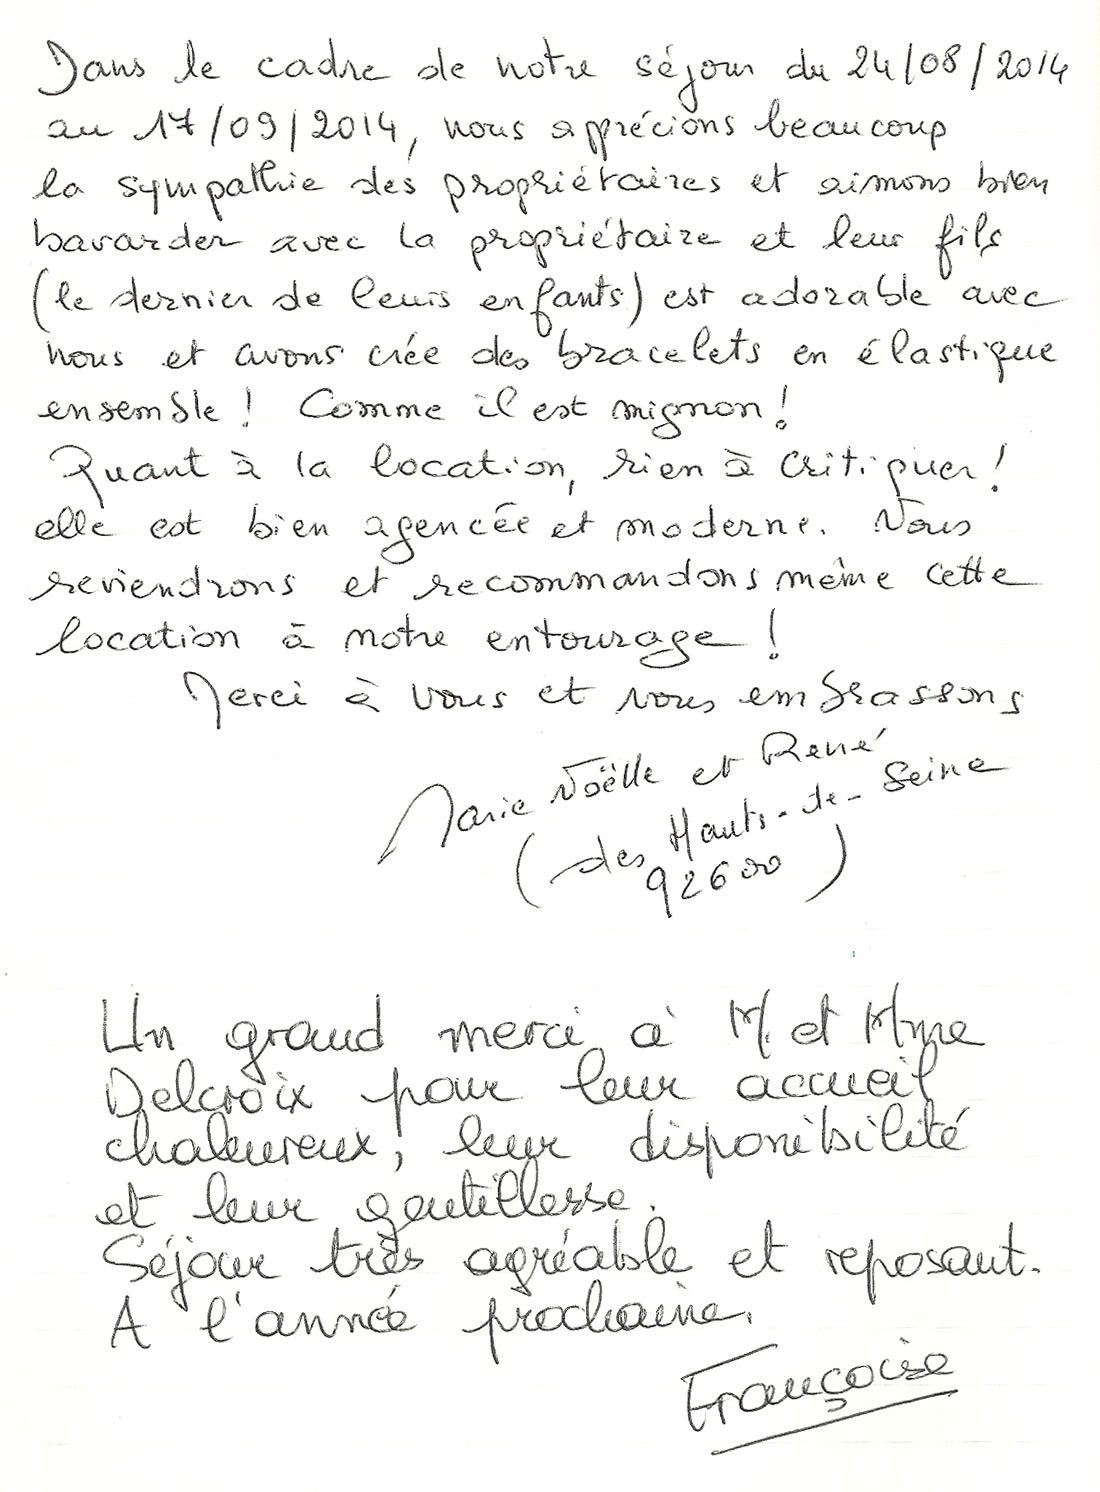 Dans le cadre de notre séjour du 24/08/2014
au 17/09/2014, nous apprécions beaucoup
la sympathie des propriétaires et aimons bien
bavarder avec la propriétaire et leur fils
(le dernier de leurs enfants) est adorable avec
nous et avons crée des bracelets en élastique
ensemble ! Comme il est mignon !
Quant à la location, rien à critiquer !
elle est bien agencée et moderne. Nous
reviendrons et recommandons même cette
location à notre entourage !
Merci à vous et vous embrassons
Marie Noëlle et René
(des Hauts-de-Seine
92600)
Un grand merci à M. et Mme
Delcroix pour leur accueil
chaleureux, leur disponibilité
et leur gentillesse.
Séjour très agréable et reposant.
A l'année prochaine.
Françoise